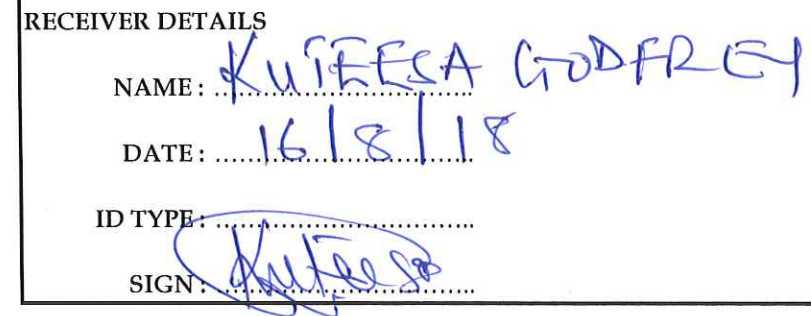 RECEIVER DETAILS
NAME: KUTEESA GODFREY
DATE: 16/8/18
ID TYPE:
SIGN: Kuteesa